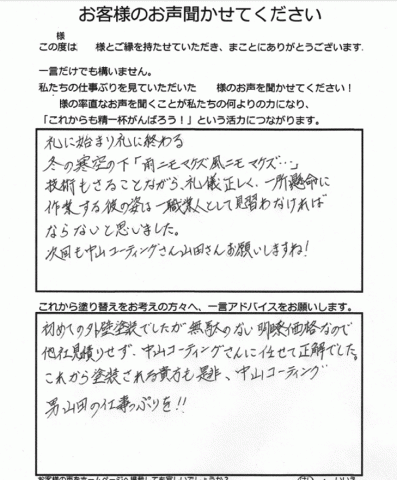 お客様のお声聞かせてください
様
この度は　様とご縁を持たせていただき、まことにありがとうございます。
一言だけでも構いません。
私たちの仕事ぶりを見ていただいた　様のお声を聞かせてください！
様の率直なお声を聞くことが私たちの何よりの力になり、
「これからも精一杯がんばろう！」という活力につながります。
礼に始まり礼に終わる
冬の寒空の下「雨ニモマケズ風ニモマケズ…」
技術もさることながら、礼儀正しく、一所懸命に
作業する彼の姿は一職業人として見習わなければ
ならないと思いました。
次回も中山コーティングさん山田さんお願いしますね！
これから塗り替えをお考えの方々へ、一言アドバイスをお願いします。
初めての外壁塗装でしたが無駄のない明瞭価格なので
他社見積りせず、中山コーティングさんに任せて正解でした。
これから塗装される貴方も是非、中山コーティング
男山田の仕事っぷりを!!
お客様の声をホームページへ掲載しても宜しいでしょうか？　はい ・ いいえ